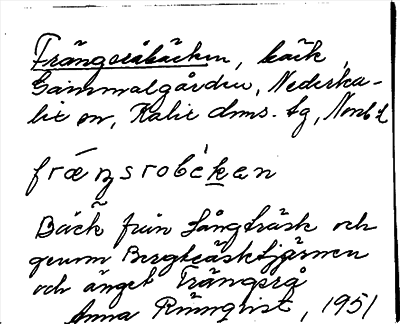 Trångsråbäcken, bäck,
Gammalgården, Nederka-
lix sn, Kalix dms. tg, Norrb. l
frǽŋsrobèken
Bäck från Långträsk och
genom Bergträsktjärnen
och änget Trångsrå
Anna Rünnqvist, 1951